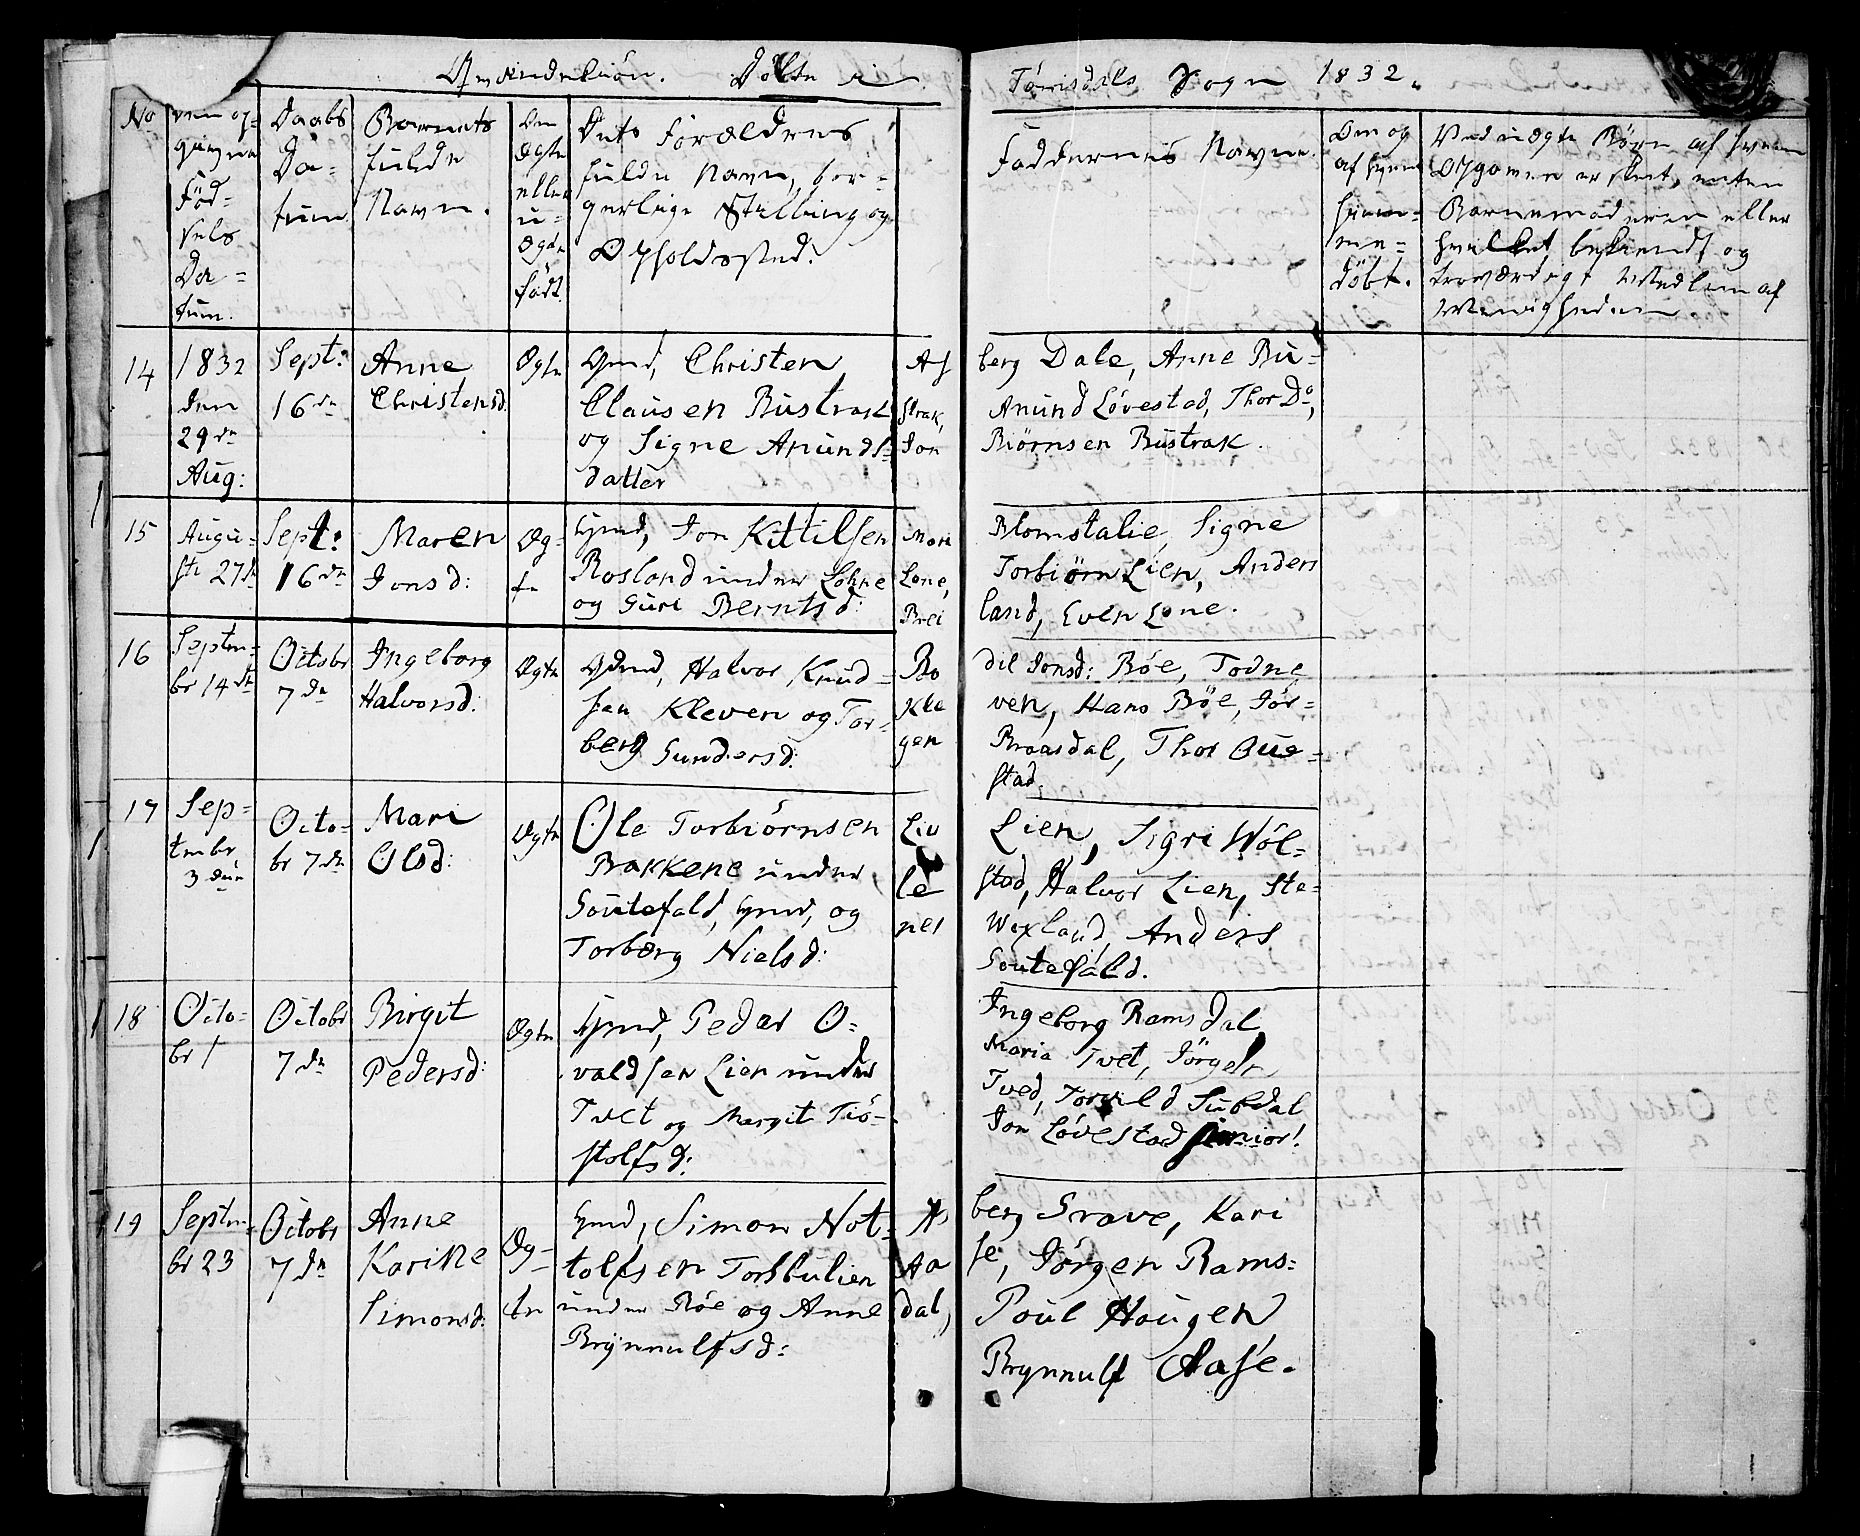 Qvindekiøn. Døbte i Tørrisdals Sogn 1832.
No
Den op-
givne
Fød-
sels
Da-
tum.
Daabs
Da-
tum.
Barnets
fulde
Navn.
Om
Ægte
eller
u-
ægte
født.
Dets Forældres
fulde Navn, bor-
gerlige Stilling og
Opholdssted.
Faddernes Navne.
Om og
af hvem
hiem-
me-
døbt.
Ved uægte Børn af hvem
Opgaven er skeet, enten
Barnemoderen eller
hvilket bekiendt og
troværdigt Medlem af
Menigheden
14
1832
den
29de
Aug:
Sept:
16de
Anne
Christensd.
Ægte
Gmd, Christen
Clausen Bustrak
og Signe Anunds-
datter
As berg Dale, Anne Bu-
strak, Anund Løvestad, Thor Do,
Jon Biørnsen Bustrak.
15
Augu-
sti 27de
Sept:
16de
Maren
Jonsd:
Æg-
te
Gmd, Jon Kittilsen
Rosland under Lohne
og Guri Berntsd:
Mari Blomstalie, Signe
Lone, Torbiørn Lien, Anders
Brei land, Even Lone.
16
Septem-
br 14de
Octobr
7de
Ingeborg
Halvorsd:
Ægte
Gmd, Halvor Knud-
sen Kleven og Tor-
berg Gundersd:
Bo dil Jonsd: Bøe, Todne
Kle ven, Hans Bøe, Jør-
gen Braasdal, Thor Bue-
stad.
17
Sep-
tembr
3die
Octo-
br 7de
Mari
Olsd:
Ægte
Ole Torbiørnsen
Bakkene under
Goutefald, Gmd, og
Torberg Nielsd:
Liv Lien, Sigri Wøl-
le stad, Halvor Lien, Ste-
nes Wexland, Anders
Goutefald.
18
Octo-
br 1
Octobr
7de
Birgit
Pedersd:
Ægte
Gmd, Peder O-
valdsen Lien under
Tvet og Margit Tiø-
stolfsd:
Ingeborg Ramsdal,
Maria Tvet, Jörgen
Tved, Torkild Subdal
Jon Løvestad junior!
19
Septem-
br 23
Octobr
7de
Anne
Karine
Simonsd:
Æg-
te
Gmd, Simon Not-
tolfsen Torsbulien
under Bøe og Anne
Brynnulfsd:
As berg Grave, Kari
Aa se, Jörgen Rams-
dal, Poul Haugen
Brynnulf Aase.